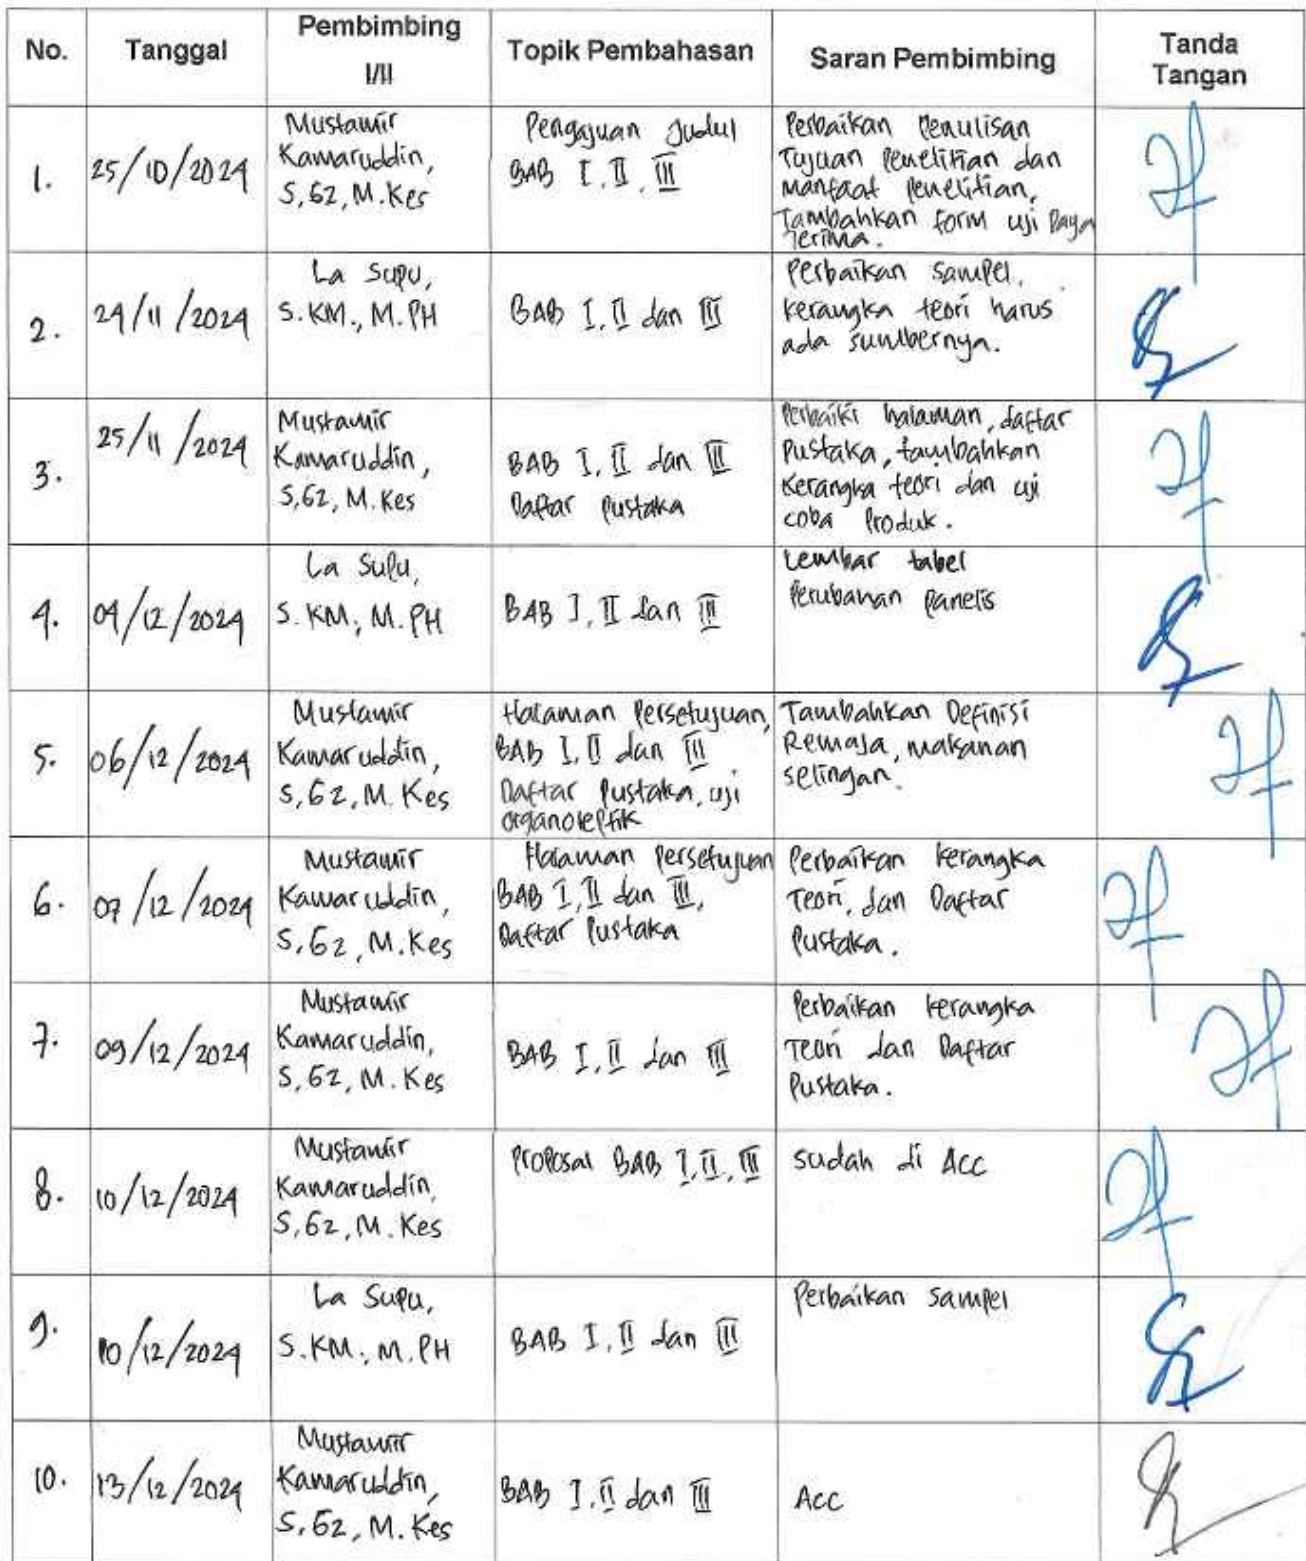 No.
Tanggal
Pembimbing
I/II
Topik Pembahasan
Saran Pembimbing
Tanda
Tangan
1.
25/10/2024
Mustamir
Kamaruddin,
S,Gz, M.Kes
Pengajuan Judul
BAB I, II, III
Perbaikan Penulisan
Tujuan Penelitian dan
manfaat Penelitian,
Tambahkan form uji Daya
Terima.
2.
24/11/2024
La Supu,
S.KM., M.PH
BAB I, II dan III
Perbaikan sampel,
kerangka teori harus
ada sumbernya.
3.
25/11/2024
Mustamir
Kamaruddin,
S,Gz, M.Kes
BAB I, II dan III
Daftar Pustaka
Perbaiki halaman, daftar
Pustaka, tambahkan
kerangka teori dan uji
coba Produk.
4.
04/12/2024
La Supu,
S.KM, M.PH
BAB I, II dan III
Lembar tabel
Perubahan Panelis
5.
06/12/2024
Mustamir
Kamaruddin,
S,Gz, M.Kes
Halaman Persetujuan,
BAB I, II dan III
Daftar Pustaka, uji
organoleptik
Tambahkan Definisi
Remaja, makanan
selingan.
6.
07/12/2024
Mustamir
Kamaruddin,
S,Gz, M.Kes
Halaman Persetujuan
BAB I, II dan III,
Daftar Pustaka
Perbaikan kerangka
Teori, dan Daftar
Pustaka.
7.
09/12/2024
Mustamir
Kamaruddin,
S,Gz, M.Kes
BAB I, II dan III
Perbaikan kerangka
Teori dan Daftar
Pustaka.
8.
10/12/2024
Mustamir
Kamaruddin,
S,Gz, M.Kes
Proposal BAB I, II, III
sudah di Acc
9.
10/12/2024
La Supu,
S.KM, M.PH
BAB I, II dan III
Perbaikan sampel
10.
13/12/2024
Mustamir
Kamaruddin,
S,Gz, M.Kes
BAB I, II dan III
Acc